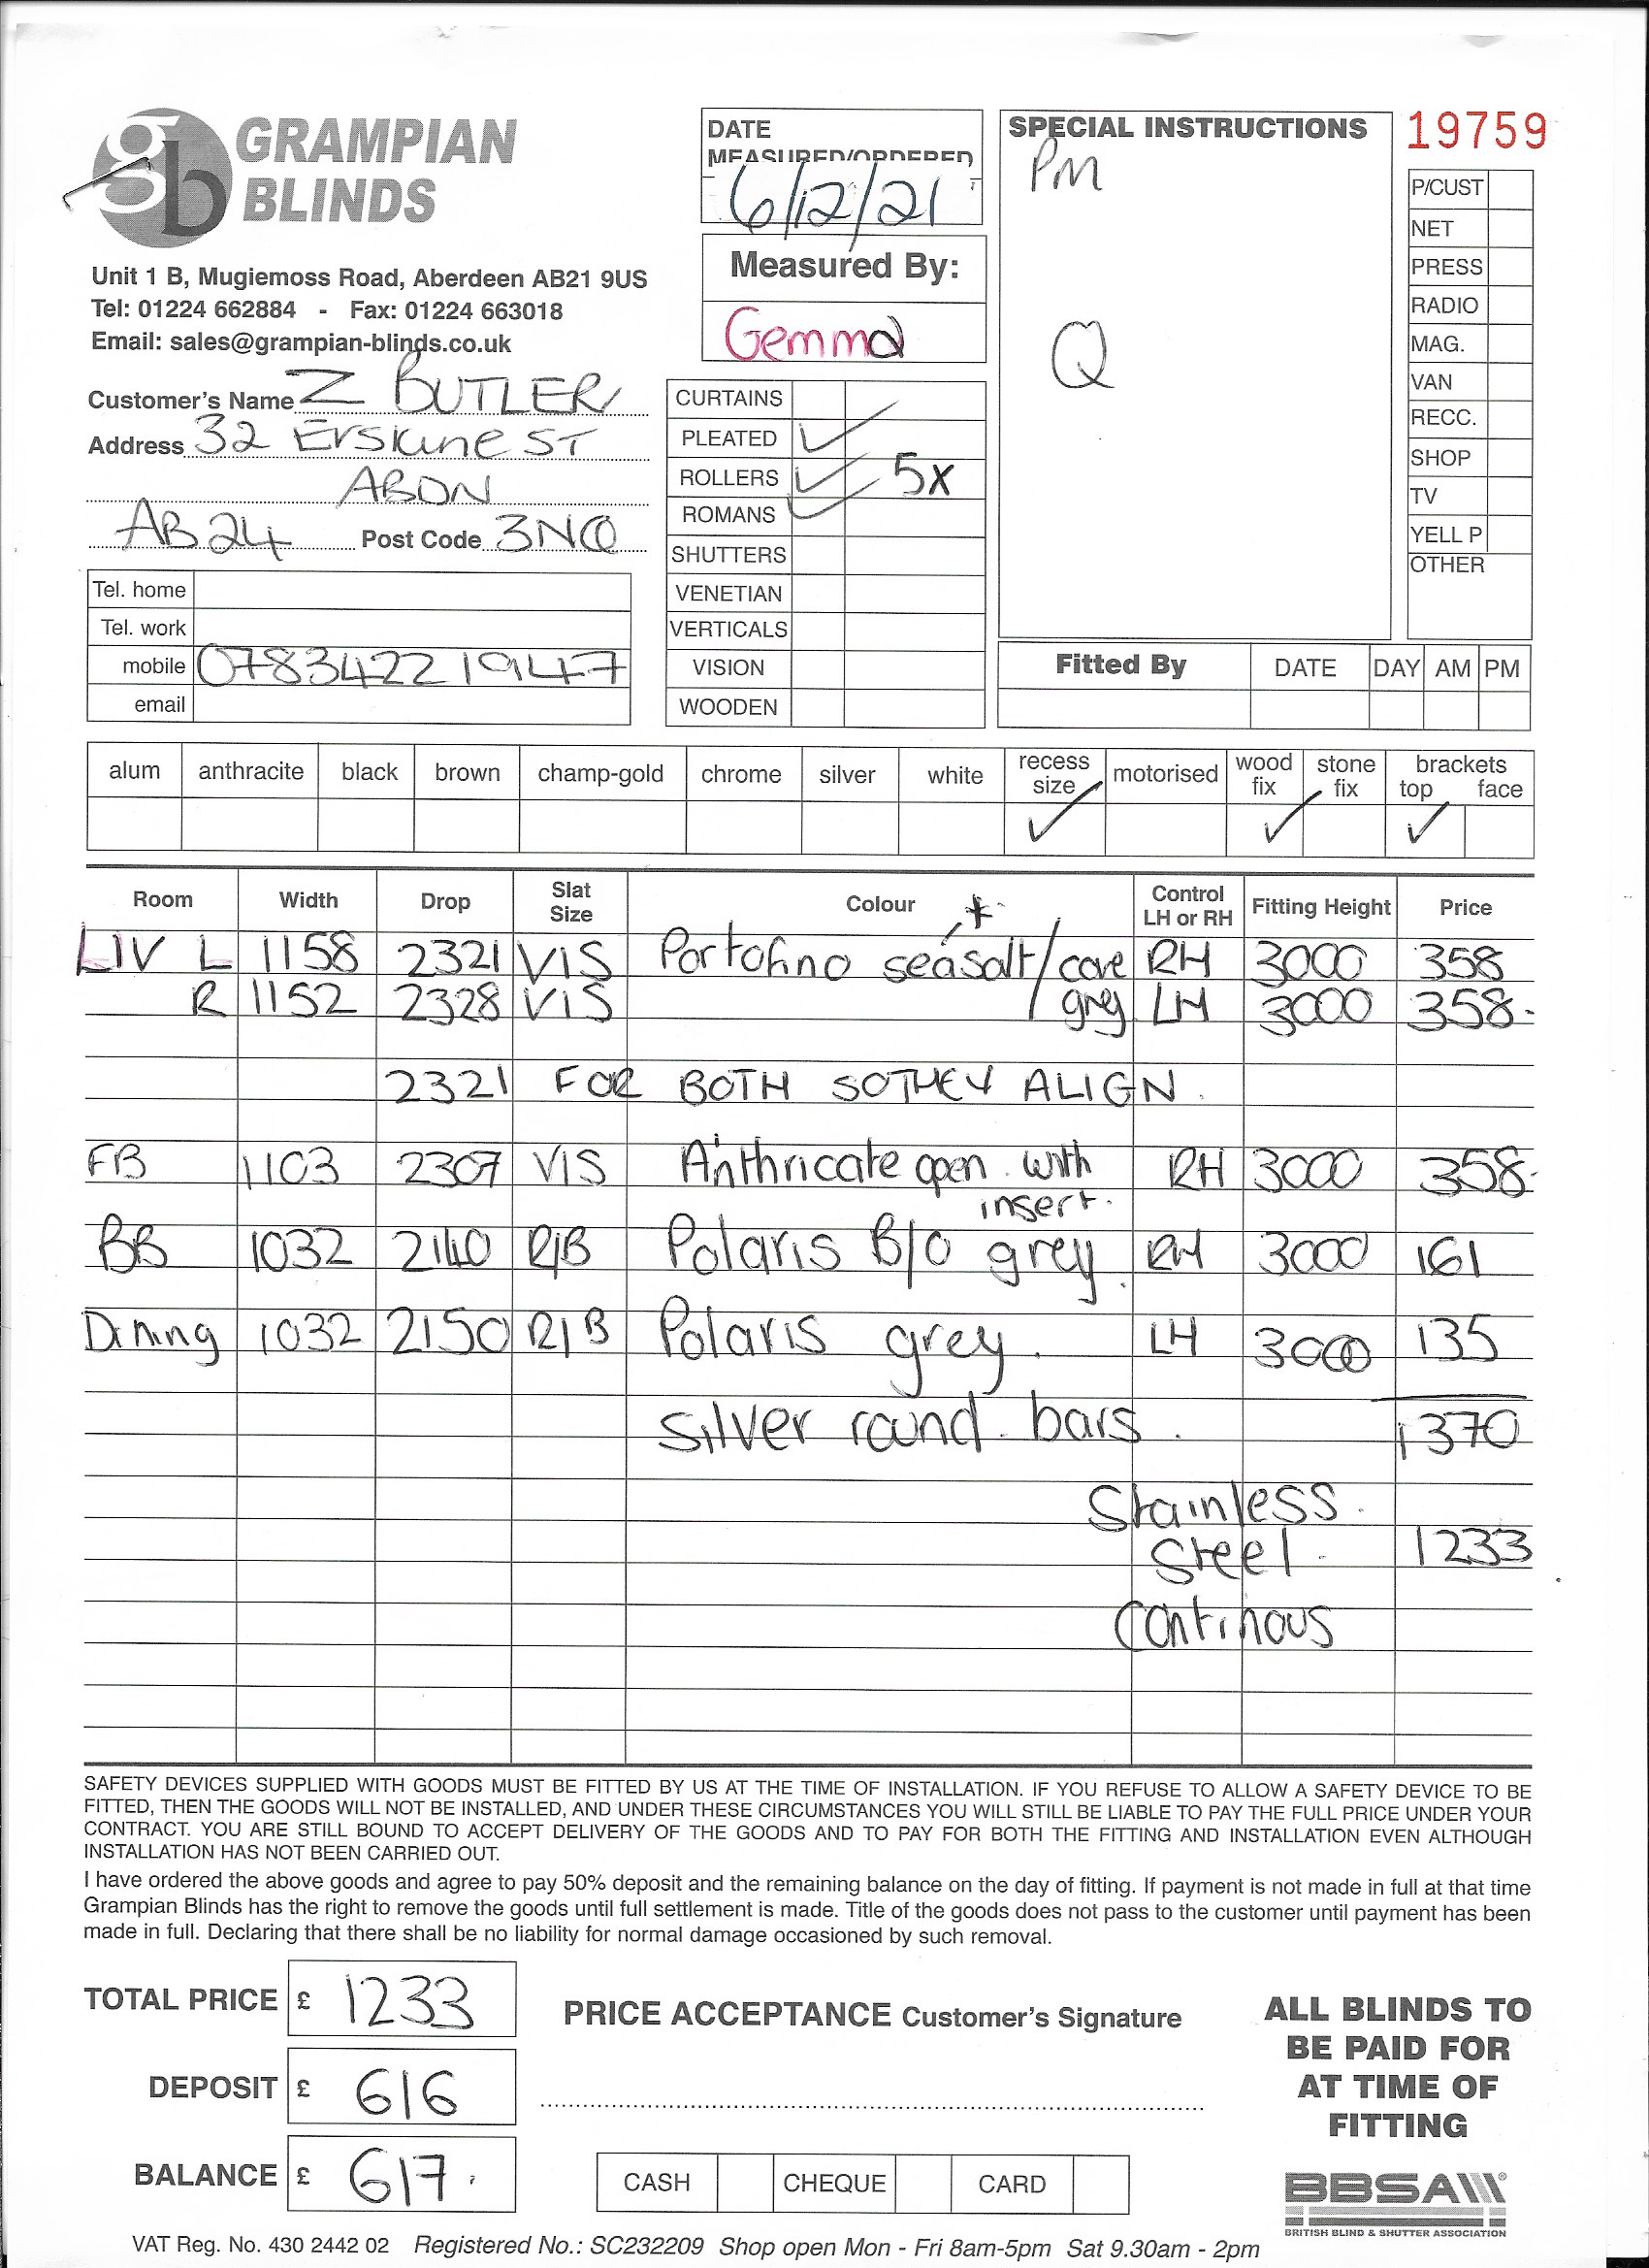 GRAMPIAN
BLINDS
gb
Unit 1 B, Mugiemoss Road, Aberdeen AB21 9US
Tel: 01224 662884 - Fax: 01224 663018
Email: sales@grampian-blinds.co.uk
Customer's Name Z BUTLER
Address 32 Erskine ST
ABDN
AB24 Post Code 3NQ
Tel. home
Tel. work
mobile 07834221947
email
DATE
MEASURED/ORDERED
6/12/21
Measured By:
Gemma
CURTAINS
PLEATED
ROLLERS 5x
ROMANS
SHUTTERS
VENETIAN
VERTICALS
VISION
WOODEN
SPECIAL INSTRUCTIONS
PM
Q
19759
P/CUST
NET
PRESS
RADIO
MAG.
VAN
RECC.
SHOP
TV
YELL P
OTHER
Fitted By DATE DAY AM PM
alum anthracite black brown champ-gold chrome silver white recess size motorised wood fix stone fix brackets top face
Room Width Drop Slat Size Colour Control LH or RH Fitting Height Price
LIV L 1158 2321 VIS Portofino seasalt/cove RH 3000 358
R 1152 2328 VIS grey LH 3000 358.
2321 FOR BOTH SO THEY ALIGN.
FB 1103 2307 VIS Anthricate open with RH 3000 358.
insert.
BB 1032 2140 R/B Polaris B/O grey. RH 3000 161
Dining 1032 2150 R/B Polaris grey. LH 3000 135
Silver round bars. 1370
Stainless.
Steel. 1233
Continous
SAFETY DEVICES SUPPLIED WITH GOODS MUST BE FITTED BY US AT THE TIME OF INSTALLATION. IF YOU REFUSE TO ALLOW A SAFETY DEVICE TO BE
FITTED, THEN THE GOODS WILL NOT BE INSTALLED, AND UNDER THESE CIRCUMSTANCES YOU WILL STILL BE LIABLE TO PAY THE FULL PRICE UNDER YOUR
CONTRACT. YOU ARE STILL BOUND TO ACCEPT DELIVERY OF THE GOODS AND TO PAY FOR BOTH THE FITTING AND INSTALLATION EVEN ALTHOUGH
INSTALLATION HAS NOT BEEN CARRIED OUT.
I have ordered the above goods and agree to pay 50% deposit and the remaining balance on the day of fitting. If payment is not made in full at that time
Grampian Blinds has the right to remove the goods until full settlement is made. Title of the goods does not pass to the customer until payment has been
made in full. Declaring that there shall be no liability for normal damage occasioned by such removal.
TOTAL PRICE £ 1233
DEPOSIT £ 616
BALANCE £ 617.
PRICE ACCEPTANCE Customer's Signature
CASH CHEQUE CARD
ALL BLINDS TO
BE PAID FOR
AT TIME OF
FITTING
BBSA
BRITISH BLIND & SHUTTER ASSOCIATION
VAT Reg. No. 430 2442 02 Registered No.: SC232209 Shop open Mon - Fri 8am-5pm Sat 9.30am - 2pm